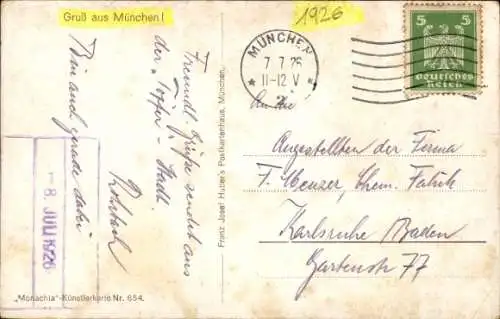 Gruß aus München!
1926
MÜNCHEN
7.7.26
11-12 V
5 5
Deutsches
Reich
Freundl. Grüße sendet aus
der "Töpfer-Stadt
Bin auch gerade dabei
- 8. JULI 1926
"Monachia"-Künstlerkarte Nr. 654.
Franz Josef Huber's Postkartenhaus, München.
An die
Angestellten der Firma
F. Wenzer, Chem. Fabrik
Karlsruhe Baden
Gartenstr 77